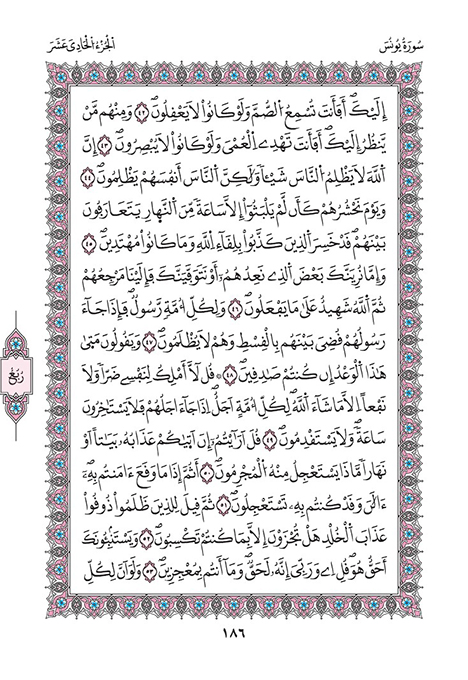 سُورَةُ يُونُسَ
اَلْجُزْءُ الْحَادِيَ عَشَرَ
إِلَيْكَۖ أَفَأَنتَ تُسْمِعُ اُ۬لصُّمَّ وَلَوْ كَانُواْ لَا يَعْقِلُونَۖ ٤٢ وَمِنْهُم مَّنْ
يَّنظُرُ إِلَيْكَۖ أَفَأَنتَ تَهْدِے اِ۬لْعُمْيَ وَلَوْ كَانُواْ لَا يُبْصِرُونَۖ ٤٣ إِنَّ
اَ۬للَّهَ لَا يَظْلِمُ اُ۬لنَّاسَ شَيْـٔاًۖ وَلَٰكِنَّ اَ۬لنَّاسَ أَنفُسَهُمْ يَظْلِمُونَۖ ٤٤
وَيَوْمَ نَحْشُرُهُمْ كَأَن لَّمْ يَلْبَثُوٓاْ إِلَّا سَاعَةٗ مِّنَ اَ۬لنَّهارِ يَتَعَارَفُونَ
بَيْنَهُمْۖ قَدْ خَسِرَ اَ۬لذِينَ كَذَّبُواْ بِلِقَآءِ اِ۬للَّهِ وَمَا كَانُواْ مُهْتَدِينَۖ ٤٥
وَإِمَّا نُرِيَنَّكَ بَعْضَ اَ۬لذِے نَعِدُهُمُۥٓ أَوْ نَتَوَفَّيَنَّكَ فَإِلَيْنَا مَرْجِعُهُمْ
ثُمَّ اَ۬للَّهُ شَهِيدٌ عَلَىٰ مَا يَفْعَلُونَۖ ٤٦ وَلِكُلِّ أُمَّةٖ رَّسُولٞۖ فَإِذَا جَآءَ
رَسُولُهُمْ قُضِيَ بَيْنَهُم بِالْقِسْطِ وَهُمْ لَا يُظْلَمُونَۖ ٤٧ وَيَقُولُونَ مَتَىٰ
هَٰذَا اَ۬لْوَعْدُ إِن كُنتُمْ صَٰدِقِينَۖ ٤٨ ۞ قُل لَّآ أَمْلِكُ لِنَفْسِے ضَرّاٗ وَلَا
نَفْعاً اِلَّا مَا شَآءَ اَ۬للَّهُۖ لِكُلِّ أُمَّةٍ اَجَلٌۖ اِذَا جَآءَ اجَلُهُمْ فَلَا يَسْتَٰخِرُونَ
سَاعَةٗ وَلَا يَسْتَقْدِمُونَۖ ٤٩ قُلَ اَرَٰٓيْتُمُۥٓ إِنَ اَت۪يٰكُمْ عَذَابُهُۥ بَيَٰتاً اَوْ
نَهَاراٗ مَّاذَا يَسْتَعْجِلُ مِنْهُ اُ۬لْمُجْرِمُونَۖ ٥٠ أَثُمَّ إِذَا مَا وَقَعَ ءَامَنتُم بِهِۦٓۖ
ءَآلَٰنَ وَقَدْ كُنتُم بِهِۦ تَسْتَعْجِلُونَۖ ٥١ ثُمَّ قِيلَ لِلذِينَ ظَلَمُواْ ذُوقُواْ
عَذَابَ اَ۬لْخُلْدِ هَلْ تُجْزَوْنَ إِلَّا بِمَا كُنتُمْ تَكْسِبُونَۖ ٥٢ وَيَسْتَنۢبِـُٔونَكَ
أَحَقٌّ هُوَۖ قُلِ اِے وَرَبِّيَ إِنَّهُۥ لَحَقّٞۖ وَمَآ أَنتُم بِمُعْجِزِينَۖ ٥٣ وَلَوَ اَنَّ لِكُلِّ
رُبُع
١٨٦